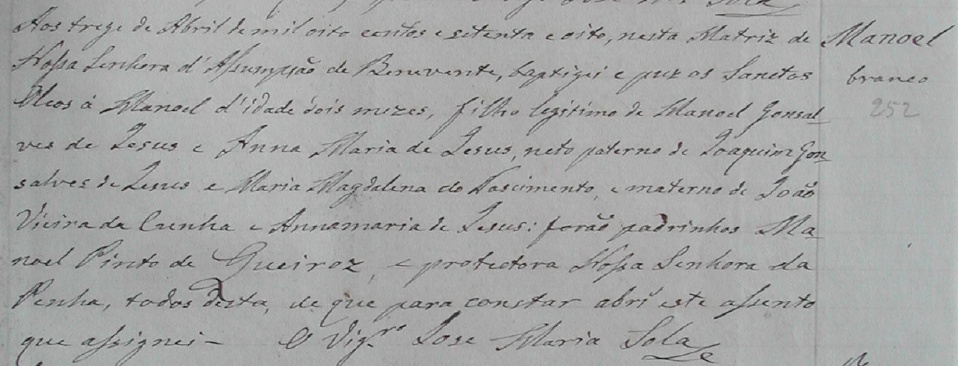 Aos treze de Abril de mil oito centos e setenta e oito, nesta Matriz de
Nossa Senhora d'Assumpsão de Benevente, baptizei e puz os Sanctos
Oleos á Manoel d'idade dois mezes, filho legitimo de Manoel Gonsal-
ves de Jesus e Anna Maria de Jesus, neto paterno de Joaquim Gon-
salves de Jesus e Maria Magdalena do Nascimento, e materno de João
Vieira da Cunha e Annamaria de Jesus: forão padrinhos Ma-
noel Pinto de Queiroz, e protectora Nossa Senhora da
Penha, todos desta, de que para constar abrí este assento
que assignei - O Vigr.º José Maria Sola
Manoel
branco
252